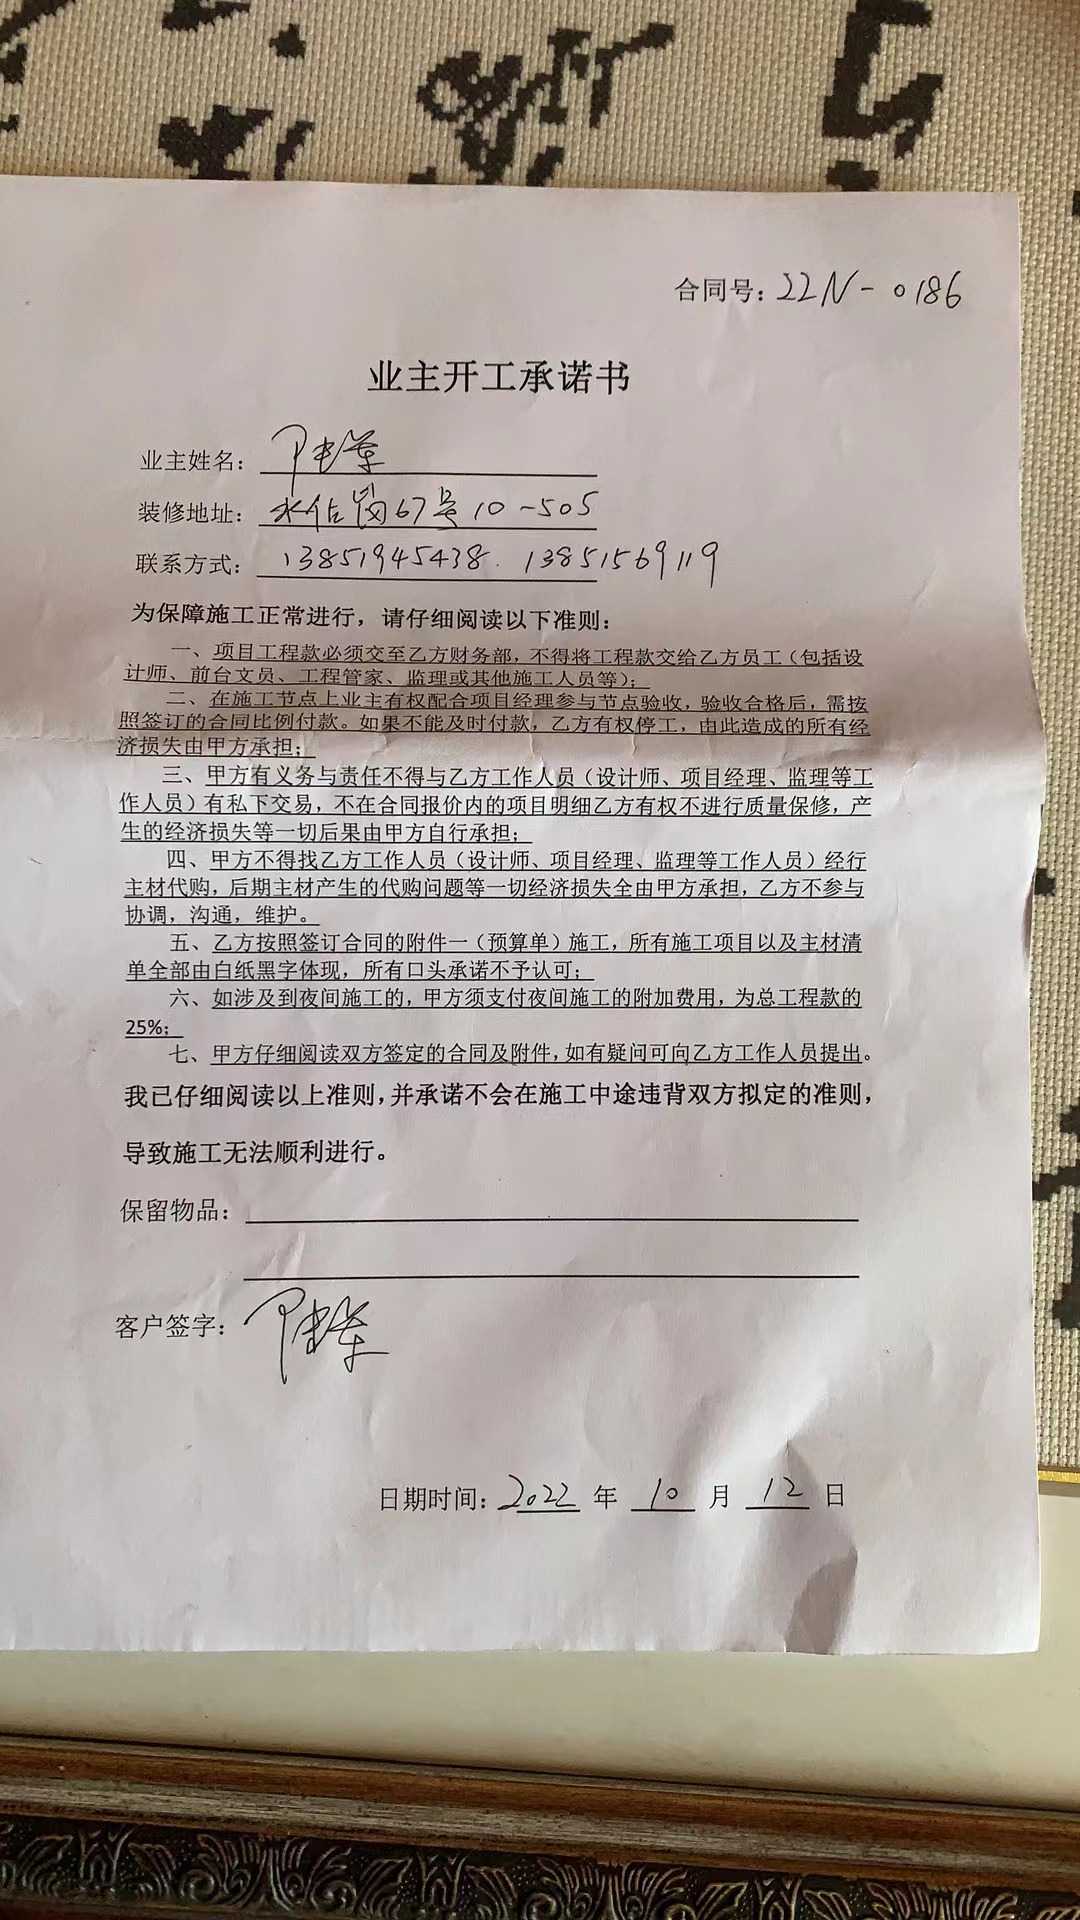 合同号：22N-0186
业主开工承诺书
业主姓名：
装修地址：水佐岗67号10-505
联系方式：13851945438. 13851569119
为保障施工正常进行，请仔细阅读以下准则：
一、项目工程款必须交至乙方财务部，不得将工程款交给乙方员工（包括设
计师、前台文员、工程管家、监理或其他施工人员等）；
二、在施工节点上业主有权配合项目经理参与节点验收，验收合格后，需按
照签订的合同比例付款。如果不能及时付款，乙方有权停工，由此造成的所有经
济损失由甲方承担；
三、甲方有义务与责任不得与乙方工作人员（设计师、项目经理、监理等工
作人员）有私下交易，不在合同报价内的项目明细乙方有权不进行质量保修，产
生的经济损失等一切后果由甲方自行承担；
四、甲方不得找乙方工作人员（设计师、项目经理、监理等工作人员）经行
主材代购，后期主材产生的代购问题等一切经济损失全由甲方承担，乙方不参与
协调，沟通，维护。
五、乙方按照签订合同的附件一（预算单）施工，所有施工项目以及主材清
单全部由白纸黑字体现，所有口头承诺不予认可；
六、如涉及到夜间施工的，甲方须支付夜间施工的附加费用，为总工程款的
25%；
七、甲方仔细阅读双方签定的合同及附件，如有疑问可向乙方工作人员提出。
我已仔细阅读以上准则，并承诺不会在施工中途违背双方拟定的准则，
导致施工无法顺利进行。
保留物品：
客户签字：
日期时间：2022 年 10 月 12 日